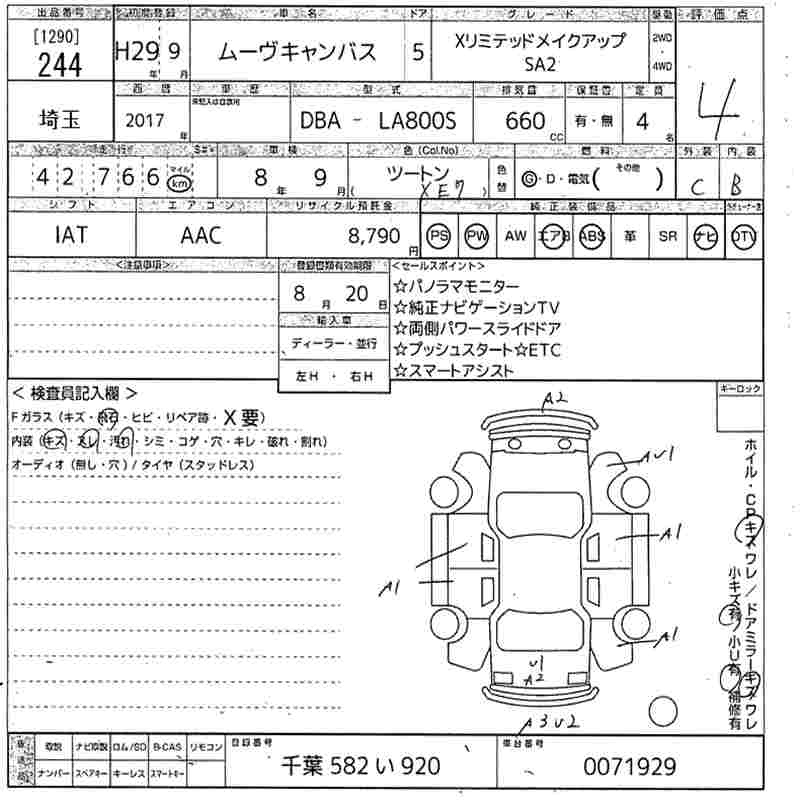 出品番号 初度登録 車名 ドア グレード 駆動 評価点
[1290]
244
H29 9
年 月
ムーヴキャンバス
5
Xリミテッドメイクアップ
SA2
2WD
・
4WD
4
西暦 車歴 型式 排気量 保証書 定員
埼玉
2017 年
未記入は自家用
DBA - LA800S
660 CC
有・無
4 名
走行 車検 色(Col.No) 燃料 外装 内装
42766
マイル
km
8 年 9 月
ツートン
( XE7 )
色替
G・D・電気( その他 )
C
B
シフト エアコン リサイクル預託金 純正装備品
IAT
AAC
8,790 円
PS PW AW エアB ABS 革 SR ナビ DTV
<注意事項>
登録書類有効期限
8 月 20 日
輸入車
ディーラー・並行
左H ・ 右H
<セールスポイント>
☆パノラマモニター
☆純正ナビゲーションTV
☆両側パワースライドドア
☆プッシュスタート☆ETC
☆スマートアシスト
キーロック
< 検査員記入欄 >
Fガラス(キズ・飛石・ヒビ・リペア跡・X要)
内装(キズ・スレ・汚れ・シミ・コゲ・穴・キレ・破れ・割れ)
オーディオ(無し・穴)/タイヤ(スタッドレス)
A2
AU1
A1
A1
A1
U1
A2
A3U2
ホイル・CPキズワレ/ドアミラーキズワレ
小キズ有・小U有・補修有
取説 ナビ取説 ロム/SD B-CAS リモコン
ナンバー スペアキー キーレス スマートキー
登録番号
千葉 582 い 920
車台番号
0071929